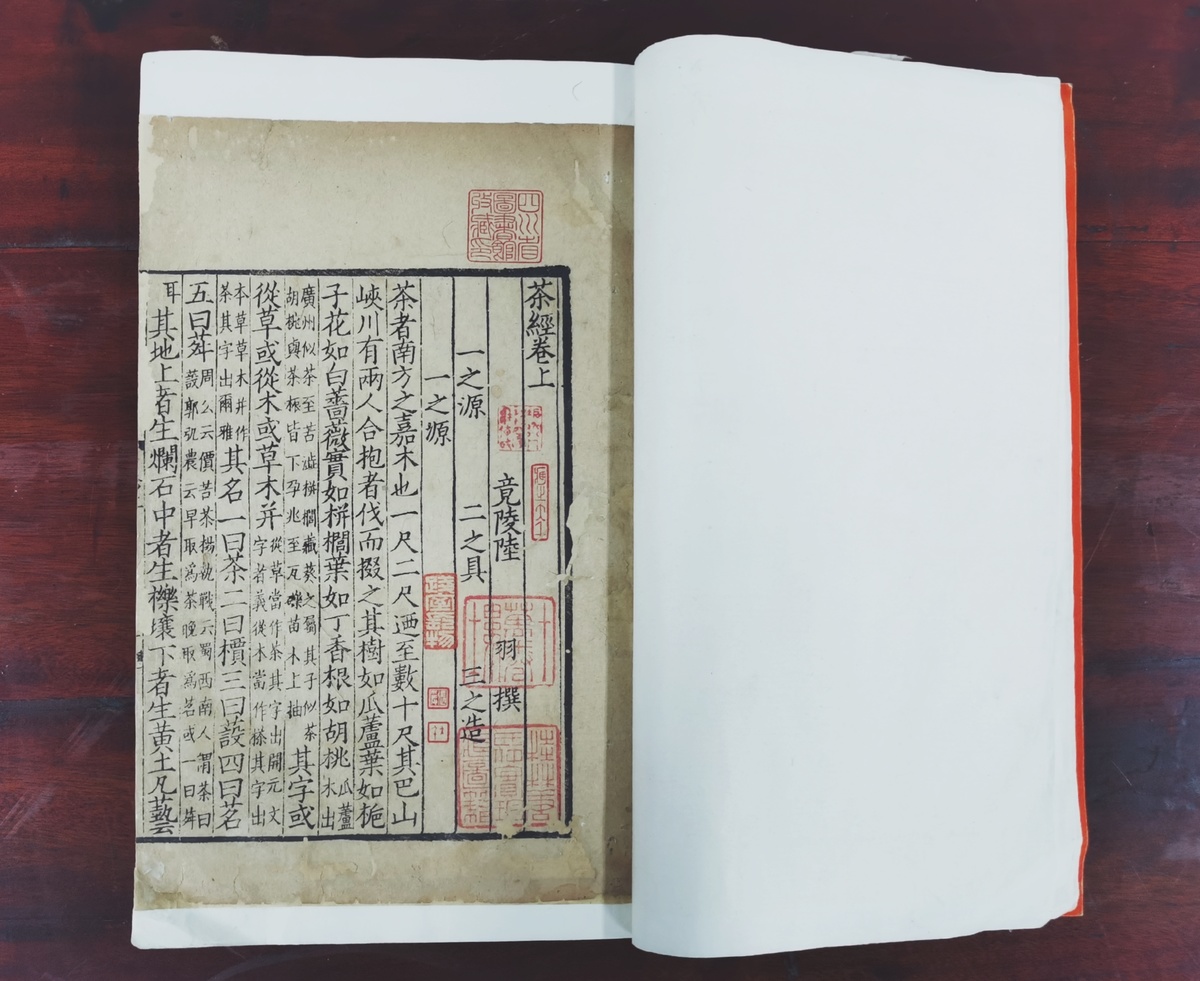 茶經卷上
竟陵陸 羽 撰
一之源 二之具 三之造
一之源
茶者南方之嘉木也一尺二尺迺至數十尺其巴山
峽川有兩人合抱者伐而掇之其樹如瓜蘆葉如梔
子花如白薔薇實如栟櫚葉如丁香根如胡桃瓜蘆木出
廣州似茶至苦澁栟櫚蒲葵之屬其子似茶胡桃與茶根皆下孕兆至瓦礫苗木上抽其字或
從草或從木或草木并從草當作茶其字出開元文字者義從木當作㮝其字出
本草草木并作茶其字出爾雅其名一曰茶二曰檟三曰蔎四曰茗
五曰荈周公云檟苦茶楊執戟云蜀西南人謂茶曰蔎郭弘農云早取爲茶晚取爲茗或一曰荈
耳其地上者生爛石中者生櫟壤下者生黃土凡藝
四川省圖書館收藏印